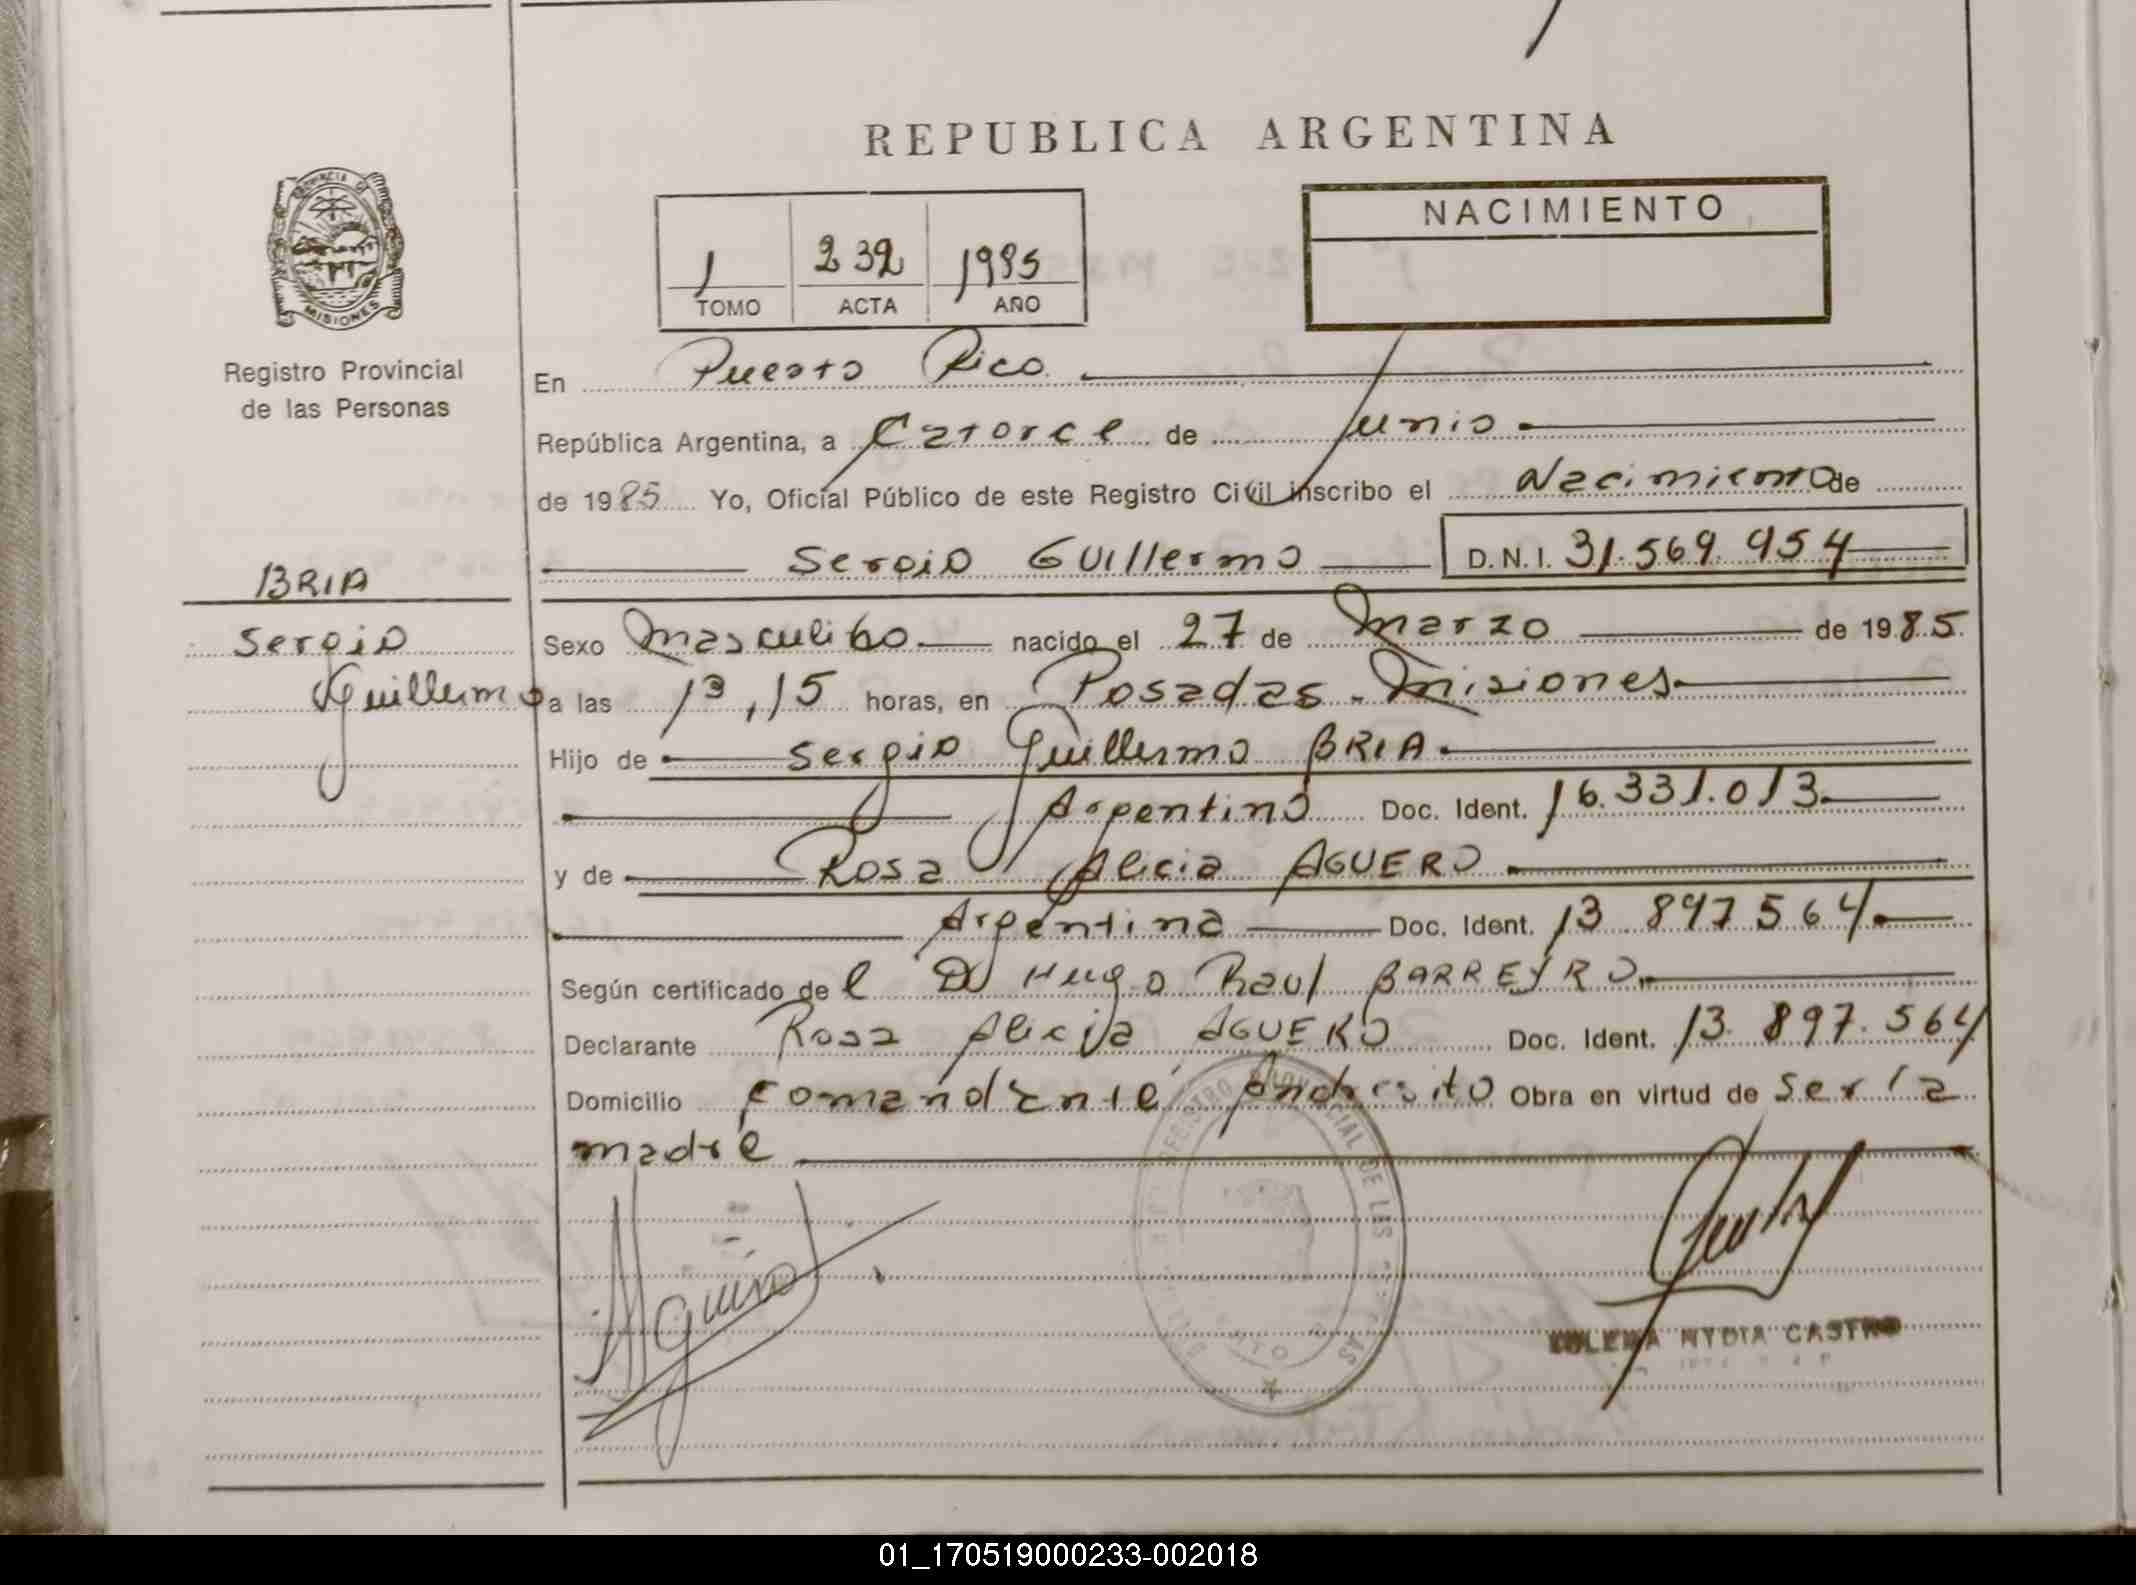 REPUBLICA ARGENTINA
PROVINCIA DE
MISIONES
Registro Provincial
de las Personas
1 232 1985
TOMO ACTA AÑO
NACIMIENTO
En Puerto Rico
República Argentina, a Catorce de Junio
de 1985 Yo, Oficial Público de este Registro Civil inscribo el Nacimiento de
Sergio Guillermo D.N.I. 31.569.954
BRIA
Sergio
Guillermo
Sexo Masculino nacido el 27 de Marzo de 1985
a las 13,15 horas, en Posadas - Misiones
Hijo de Sergio Guillermo BRIA
Argentino Doc. Ident. 16.331.013
y de Rosa Alicia AGUERO
Argentina Doc. Ident. 13 897564
Según certificado del Dr Hugo Raul BARREYRO
Declarante Rosa Alicia AGUERO Doc. Ident. 13.897.564
Domicilio Comandante Andresito Obra en virtud de ser la
madre
REGISTRO PROVINCIAL DE LAS
Aguero
NYDIA CASTRO
01_170519000233-002018